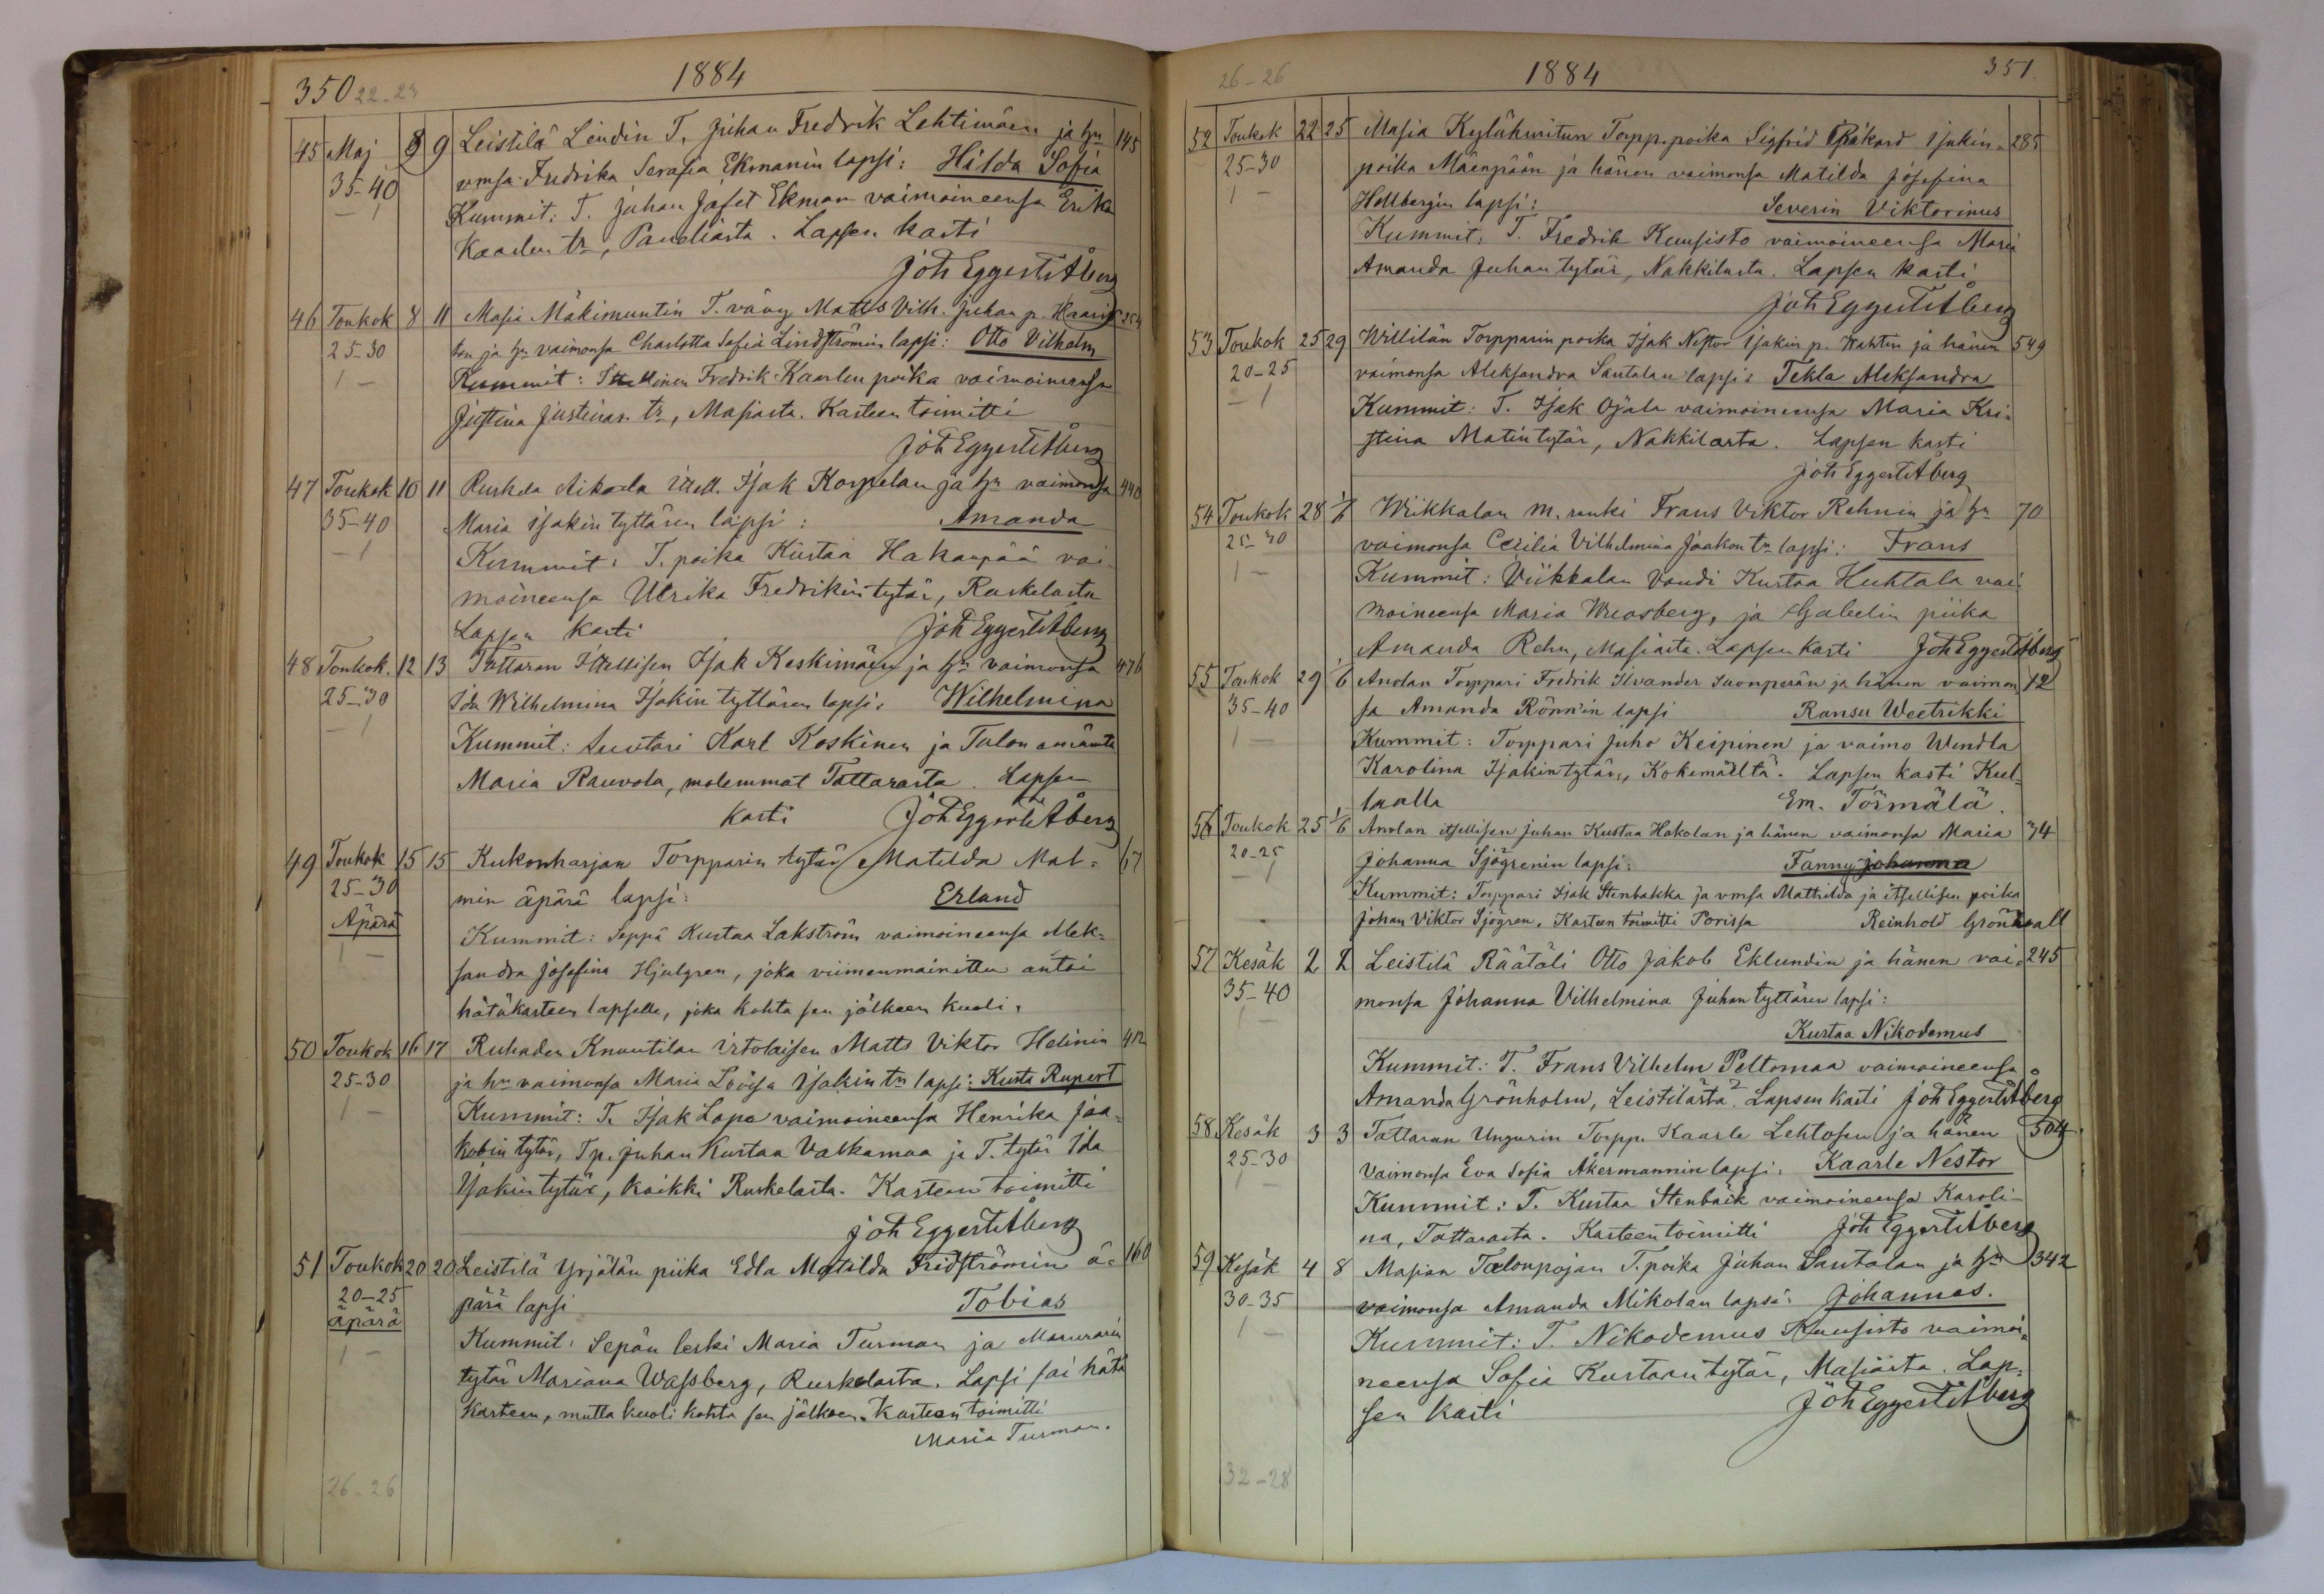 350 22-23 1884
45 Maj 8 9 Leistilä Lendin T. Juhan Fredrik Lehtimäen ja hn 145
35-40 vmsa Fredrika Serafia Ekmanin lapsi: Hilda Sofia
— 1 Kummit: T. Juhan Jafet Ekman vaimoineensa Erika
Kaarlen tr, . Lapsen kasti
Joh Eggert Åberg
46 Toukok 8 11 Masia Mäkimuntin T. vävy Matts Vilh. Juhan p.
25-30 ton ja hn vaimonsa Charlotta Sofia Lindströmin lapsi: Otto Vilhelm
1 — Kummit: Itsellinen Fredrik Kaarlen poika vaimoineensa
Justina Justinan tr, Masiasta. Kasteen toimitti
Joh Eggert Åberg
47 Toukok 10 11 Ruskela Aikaila Itsell. Isak Korpelan ja hn vaimonsa 440
35-40 Maria Isakin tyttären lapsi: Amanda
— 1 Kummit: T. poika Kustaa Hakanpää vai-
moineensa Ulrika Fredrikin tytär, Ruskelasta
Lapsen kasti Joh Eggert Åberg
48 Toukok. 12 13 Tattaran Itsellisen Isak Keskimäen ja hn vaimonsa 476
25-30 Ida Wilhelmina Isakin tyttären lapsi: Wilhelmina
— 1 Kummit: Suutari Karl Koskinen ja Talon emäntä
Maria Rauvola, molemmat Tattarasta. Lapsen
kasti Joh Eggert Åberg
49 Toukok 15 15 Kukonharjan Torpparin tytär Matilda Mal- 67
25-30 min äpärä lapsi: Erland
Äpärä Kummit: Seppä Kustaa Lakström vaimoineensa Alek-
1 — sandra Josefina Hjulgren, joka viimeumainittu antoi
hätäkasteen lapselle, joka kohta sen jälkeen kuoli.
50 Toukok 16 17 Ruhaden Knuutilan Irtolaisen Matts Viktor Helinin 412
25-30 ja hn vaimonsa Maria Lovisa Isakin tn lapsi: Kusta Rupert
1 — Kummit: T. Isak Lapo vaimoineensa Henrika Jaa-
kobin tytär, Tp. Juhan Kustaa Valkamaa ja T. tytär Ida
Isakin tytär, kaikki Ruskelasta. Kasteen toimitti
Joh Eggert Åberg
51 Toukok 20 20 Leistilä Yrjälän piika Edla Matilda Fridströmin ä- 160
20-25 pärä lapsi Tobias
äpärä Kummit: Sepän leski Maria Turman ja Muurarin
1 — tytär Mariana Wassberg, Ruskelasta. Lapsi sai hätä
kasteen, mutta kuoli kohta sen jälkeen. Kasteen toimitti
Maria Turman.
26-26
26-26 1884 351.
52 Toukok 22 25 Masia Kylähuitun Torpp. poika Sigfrid Rikard Isakin- 285
25-30 poika Mäenpään ja hänen vaimonsa Matilda Josefina
1 — Hellbergin lapsi: Severin Viktorinus
Kummit: T. Fredrik Kuusisto vaimoineensa Maria
Amanda Juhan tytär, Nakkilasta. Lapsen kasti
Joh Eggert Åberg
53 Toukok 25 29 Willilän Torpparin poika Isak Nestor Isakin p. Kahtin ja hänen 549
20-25 vaimonsa Aleksandra Santalan lapsi: Tekla Aleksandra
— 1 Kummit: T. Isak Ojala vaimoineensa Maria Kri-
stina Matin tytär, Nakkilasta. Lapsen kasti
Joh Eggert Åberg
54 Toukok 28 1/6 Wiikkalan m. renki Frans Viktor Rehnin ja hn 70
25-30 vaimonsa Cecilia Vilhelmina Jaakon tn lapsi: Frans
1 — Kummit: Viikkalan Voudi Kustaa Huhtala vai-
moineensa Maria , ja piika
Amanda Rehn, Masiasta. Lapsen kasti Joh Eggert Åberg
55 Toukok 29 1/6 Anolan Torppari Fredrik Ilvander Suonperän ja hänen vaimon 12
35-40 sa Amanda Rönn'in lapsi Ransu Weetrikki
1 — Kummit: Torppari Juho Keipinen ja vaimo Wendla
Karolina Isakintytär, Kokemäeltä. Lapsen kasti Kul-
laalla Em. Törmälä.
56 Toukok 25 1/6 Anolan itsellisen Juhan Kustaa Hakolan ja hänen vaimonsa Maria 74
20-25 Johanna Sjögrenin lapsi: Fanny Johanna
— 1 Kummit: Torppari Isak Stenbakka ja vmsa Mathilda ja itsellisen poika
Johan Viktor Sjögren. Kasteen toimitti Porissa Reinhold Grönvall
57 Kesäk 2 2 Leistilä Räätäli Otto Jakob Eklundin ja hänen vai- 245
35-40 monsa Johanna Vilhelmina Juhan tyttären lapsi:
1 — Kustaa Nikodemus
Kummit: T. Frans Vilhelm Peltomaa vaimoineensa
Amanda Grönholm, Leistilästä. Lapsen kasti Joh Eggert Åberg
58 Kesäk 3 3 Tattaran Ungurin Torpp. Kaarle Lehtosen ja hänen 504
25-30 vaimonsa Eva Sofia Åkermannin lapsi: Kaarle Nestor
1 — Kummit: T. Kustaa Stenbäck vaimoineensa Karoli-
na, Tattarasta. Kasteen toimitti Joh Eggert Åberg
59 Kesäk 4 8 Masian Talonpojan T. poika Juhan Santalan ja hn 342
30-35 vaimonsa Amanda Mikolan lapsi: Johannes.
1 — Kummit: T. Nikodemus Kuusisto vaimoi-
neensa Sofia Kustaan tytär, Masiasta. Lap-
sen kasti Joh Eggert Åberg
32-28